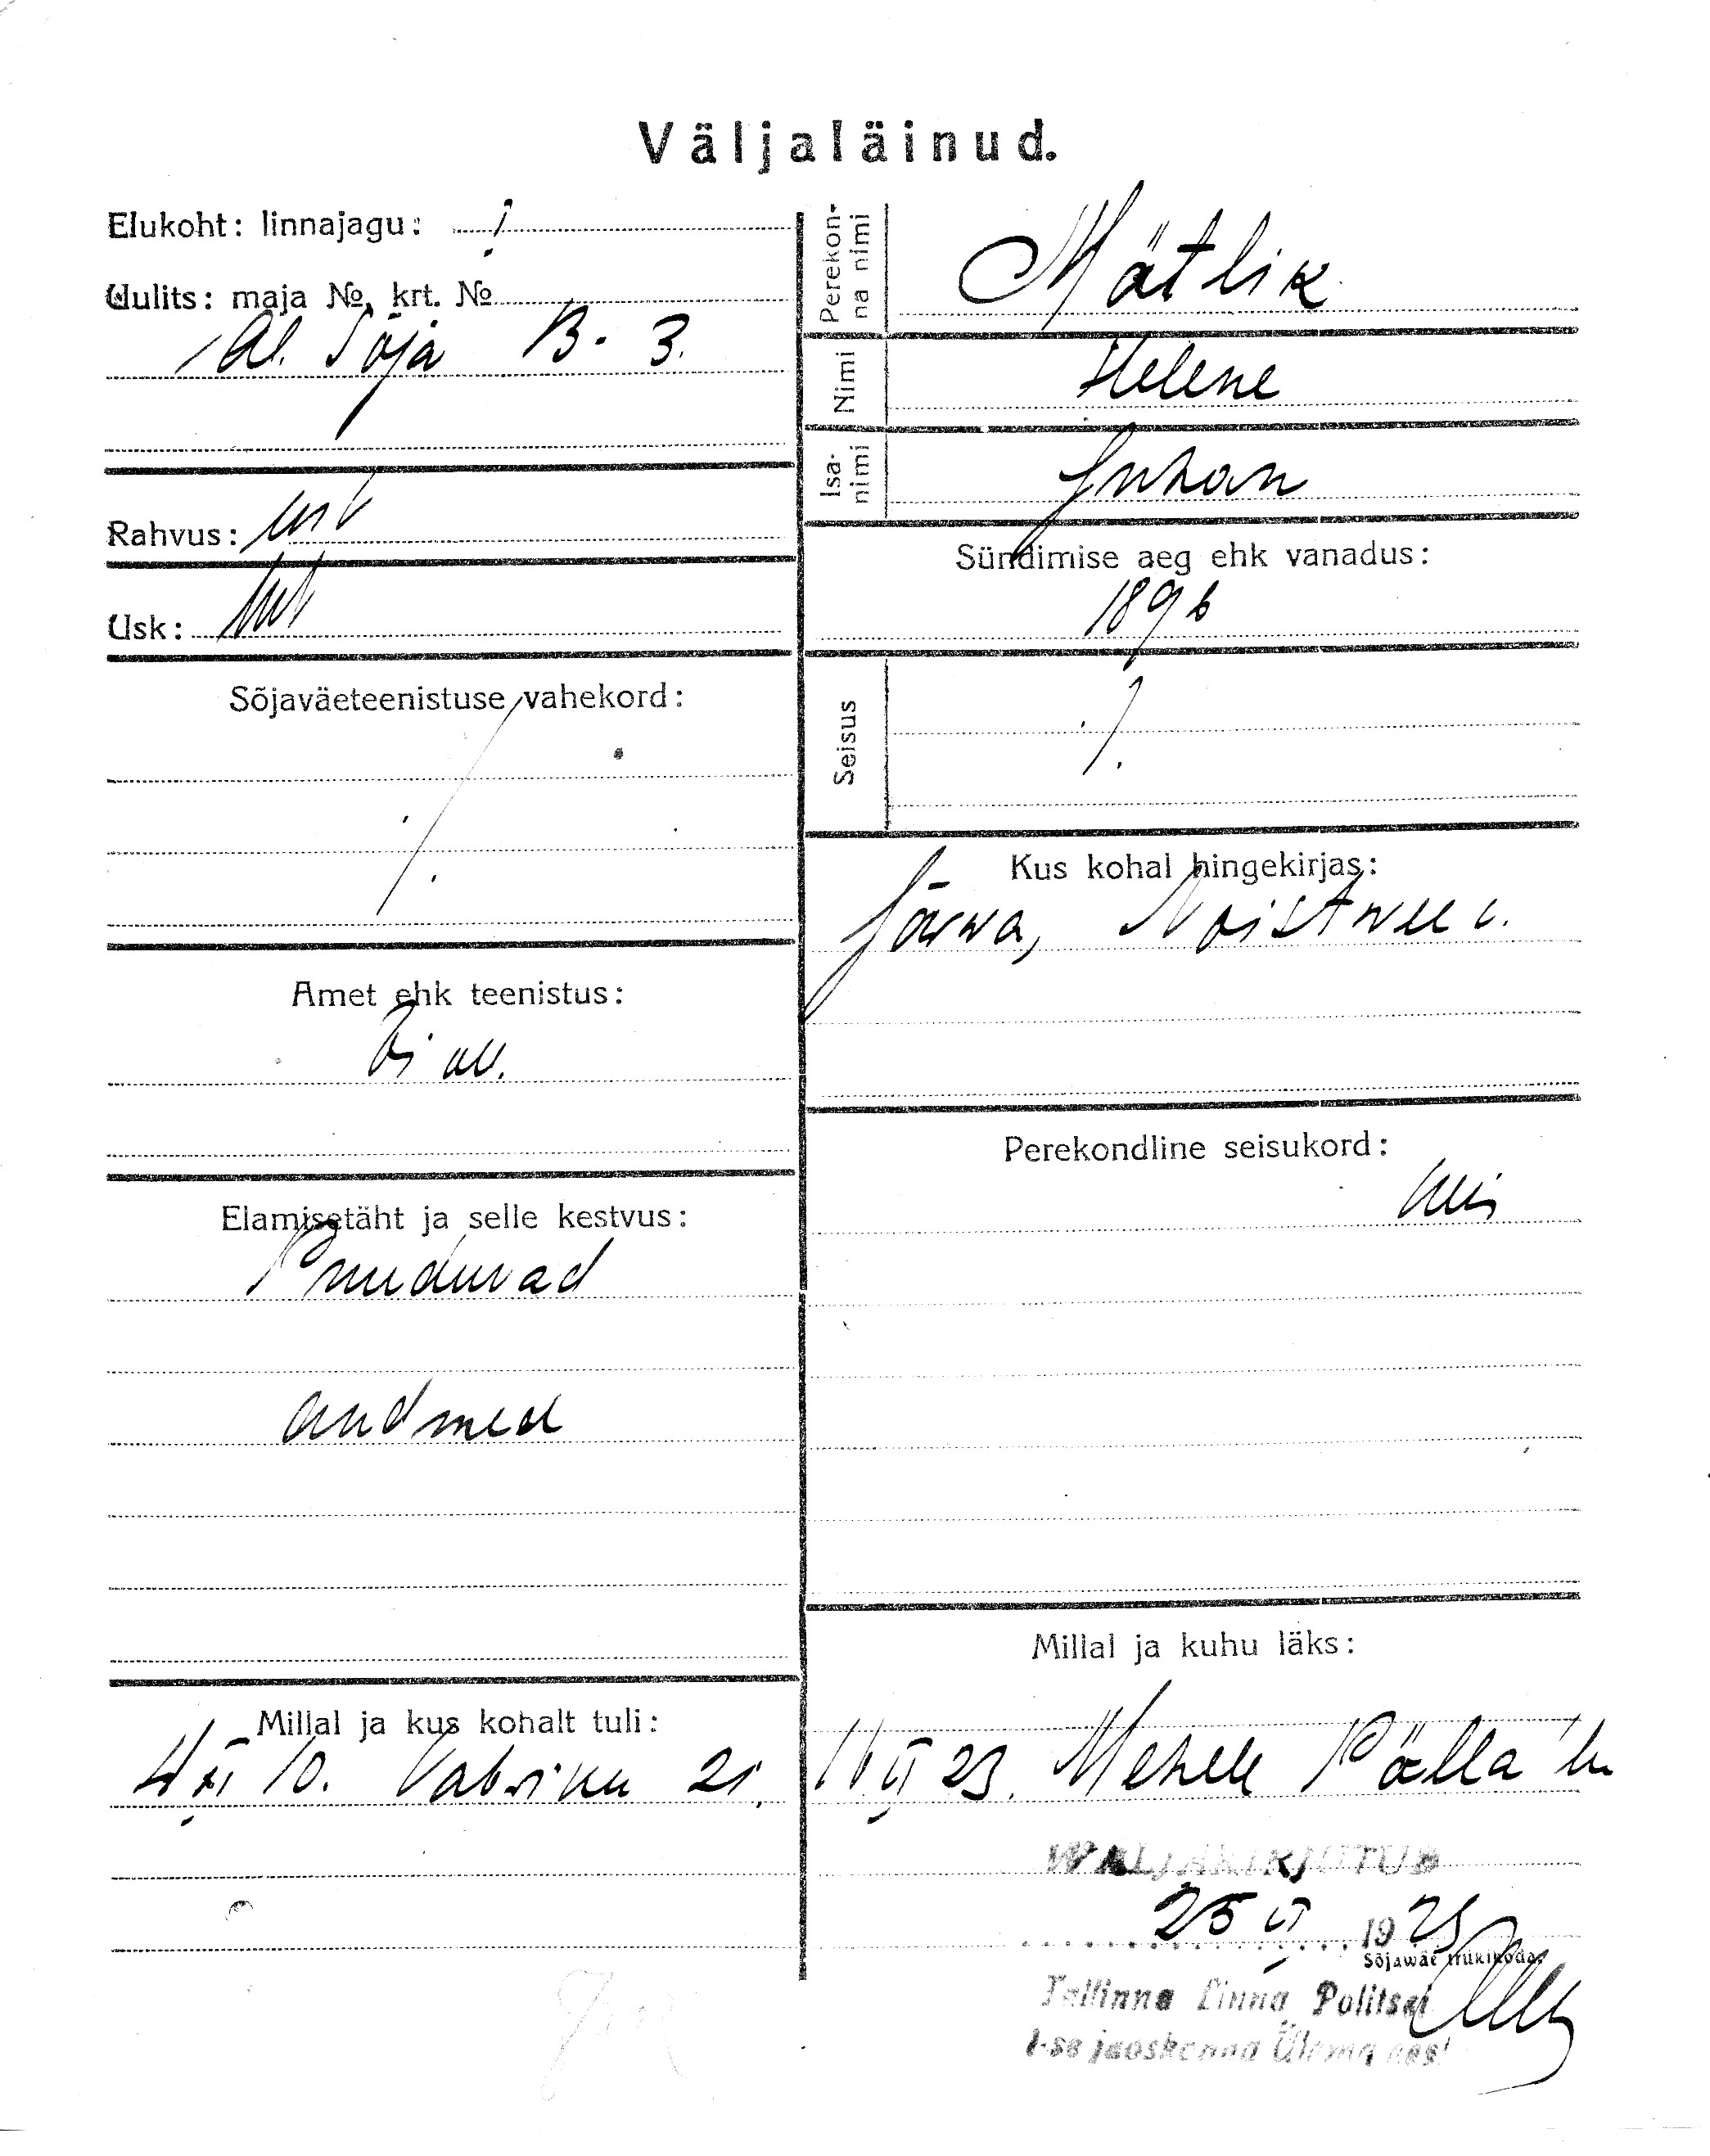 Väljaläinud.
Elukoht: linnajagu: 1
Uulits: maja №, krt. №
Sõja 13 - 3.
Rahvus:
Usk:
Sõjaväeteenistuse vahekord:
Amet ehk teenistus:
Elamisetäht ja selle kestvus:
Puuduvad
andmed
Millal ja kus kohalt tuli:
10. Vabriku 21.
Perekonna nimi
Mätlik
Nimi
Helene
Isanimi
Juhan
Sündimise aeg ehk vanadus:
1896
Seisus
Kus kohal hingekirjas:
Järwa, Noistwee v.
Perekondline seisukord:
Millal ja kuhu läks:
VI 23. Mehele Põlla
WÄLJAKIRJUTUD
25 VI 1923
Sõjawäe trükikoda.
Tallinna Linna Politsei
1-se jaoskonna Ülema